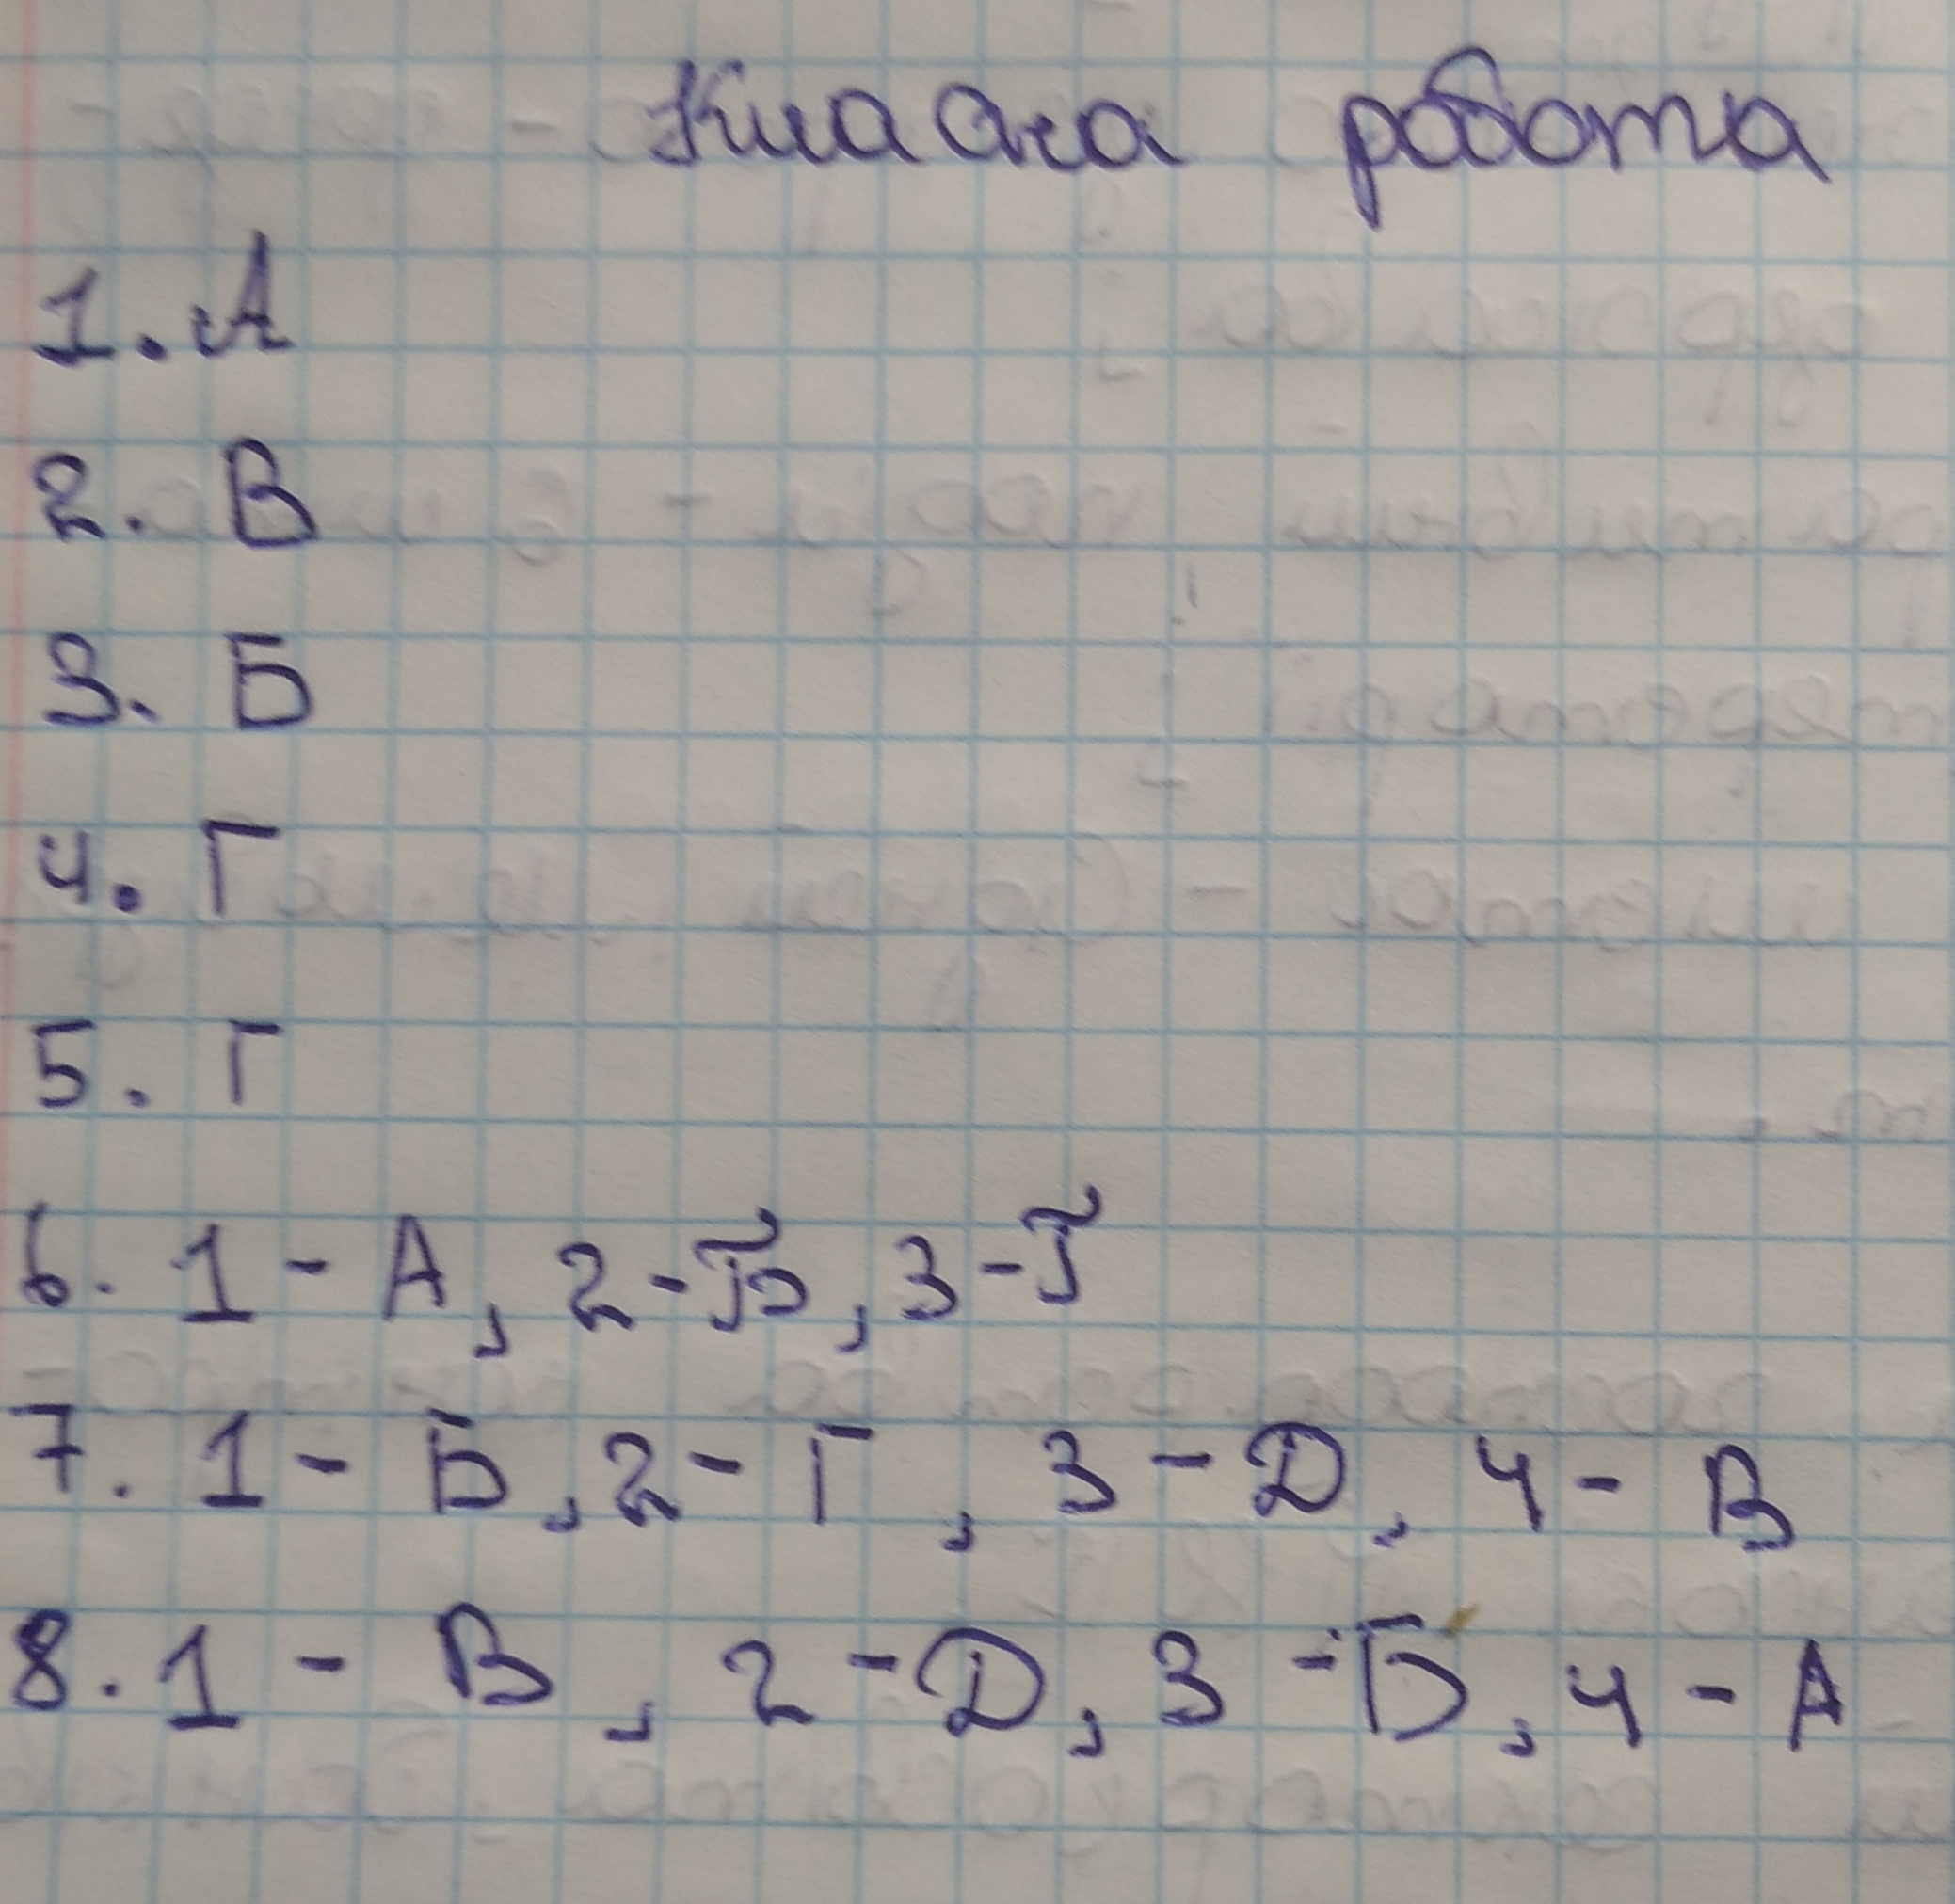 Класна робота
1. А
2. В
3. Б
4. Г
5. Г
6. 1 - А, 2 - Б, 3 - Г
7. 1 - Б, 2 - Г, 3 - Д, 4 - В
8. 1 - В, 2 - Д, 3 - Б, 4 - А